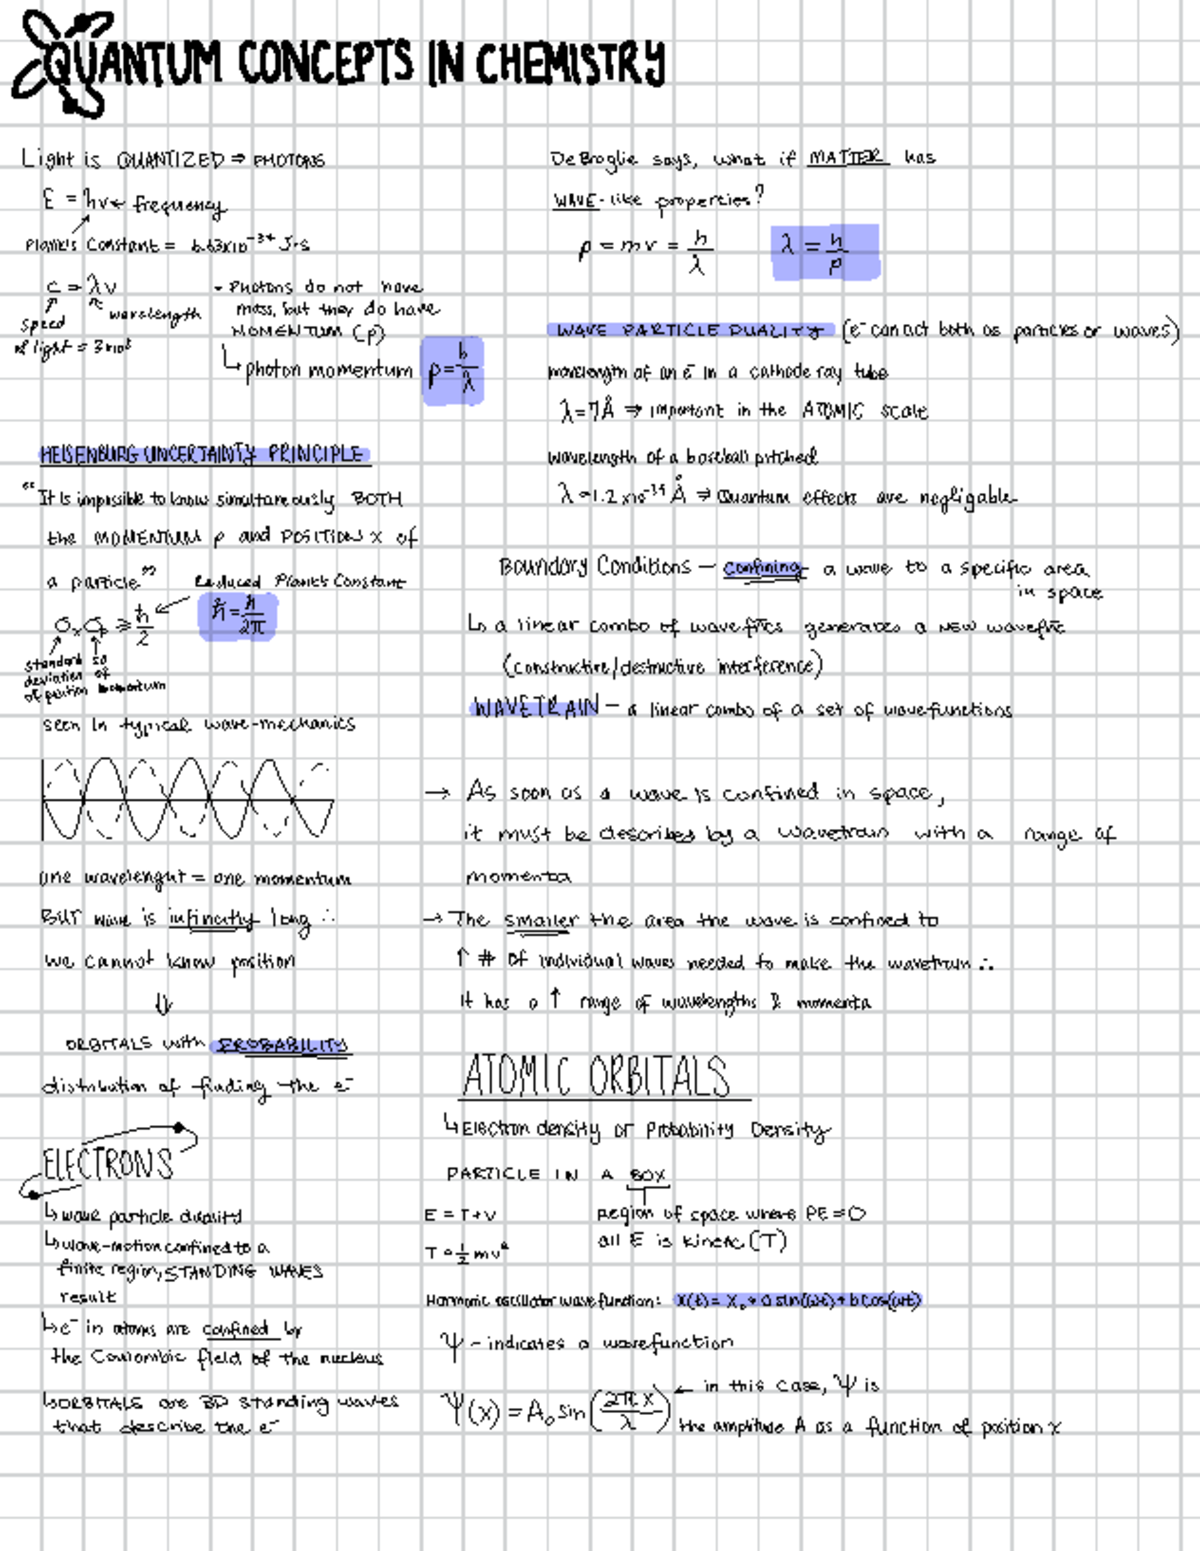 QUANTUM CONCEPTS IN CHEMISTRY
Light is QUANTIZED ⇒ PHOTONS
E = hν ← frequency
Planck's Constant = 6.63x10⁻³⁴ J·s
c = λν
speed of light = 3x10⁸
wavelength
- Photons do not have
mass, but they do have
MOMENTUM (p)
↳ photon momentum p = h/λ
HEISENBURG UNCERTAINTY PRINCIPLE
"It is impossible to know simultaneously BOTH
the MOMENTUM p and POSITION x of
a particle"
Reduced Planck's Constant
σₓσₚ ≥ ħ/2
ħ = h/2π
standard deviation of position
SD of momentum
seen in typical wave-mechanics
one wavelenght = one momentum
BUT wave is infinitly long ∴
we cannot know position
⇓
ORBITALS with PROBABILITY
distribution of finding the e⁻
ELECTRONS
↳ wave particle duality
↳ wave-motion confined to a
finite region, STANDING WAVES
result
↳ e⁻ in atoms are confined by
the Coulombic field of the nucleus
↳ ORBITALS are 3D standing waves
that describe the e⁻
DeBroglie says, what if MATTER has
WAVE-like properties?
p = mv = h/λ
λ = h/p
WAVE PARTICLE DUALITY (e⁻ can act both as particles or waves)
wavelength of an e⁻ in a cathode ray tube
λ = 7Å ⇒ important in the ATOMIC scale
wavelength of a baseball pitched
Å ⇒ Quantum effects are negligable
Boundary Conditions — confining a wave to a specific area
in space
↳ a linear combo of wavefncs generates a NEW wavefnc
(constructive/destructive interference)
WAVETRAIN — a linear combo of a set of wavefunctions
→ As soon as a wave is confined in space,
it must be described by a wavetrain with a range of
momenta
→ The smaller the area the wave is confined to
↑ # of individual waves needed to make the wavetrain ∴
it has a ↑ range of wavelengths & momenta
ATOMIC ORBITALS
↳ Electron density or Probability Density
PARTICLE IN A BOX
E = T + V
region of space where PE = 0
all E is kinetic (T)
T = ½ mv²
Harmonic oscillator wavefunction: x(t) = x₀ + a sin(ωt) + b cos(ωt)
Ψ - indicates a wavefunction
Ψ(x) = A₀ sin(2πx/λ) ← in this case, Ψ is
the amplitude A as a function of position x